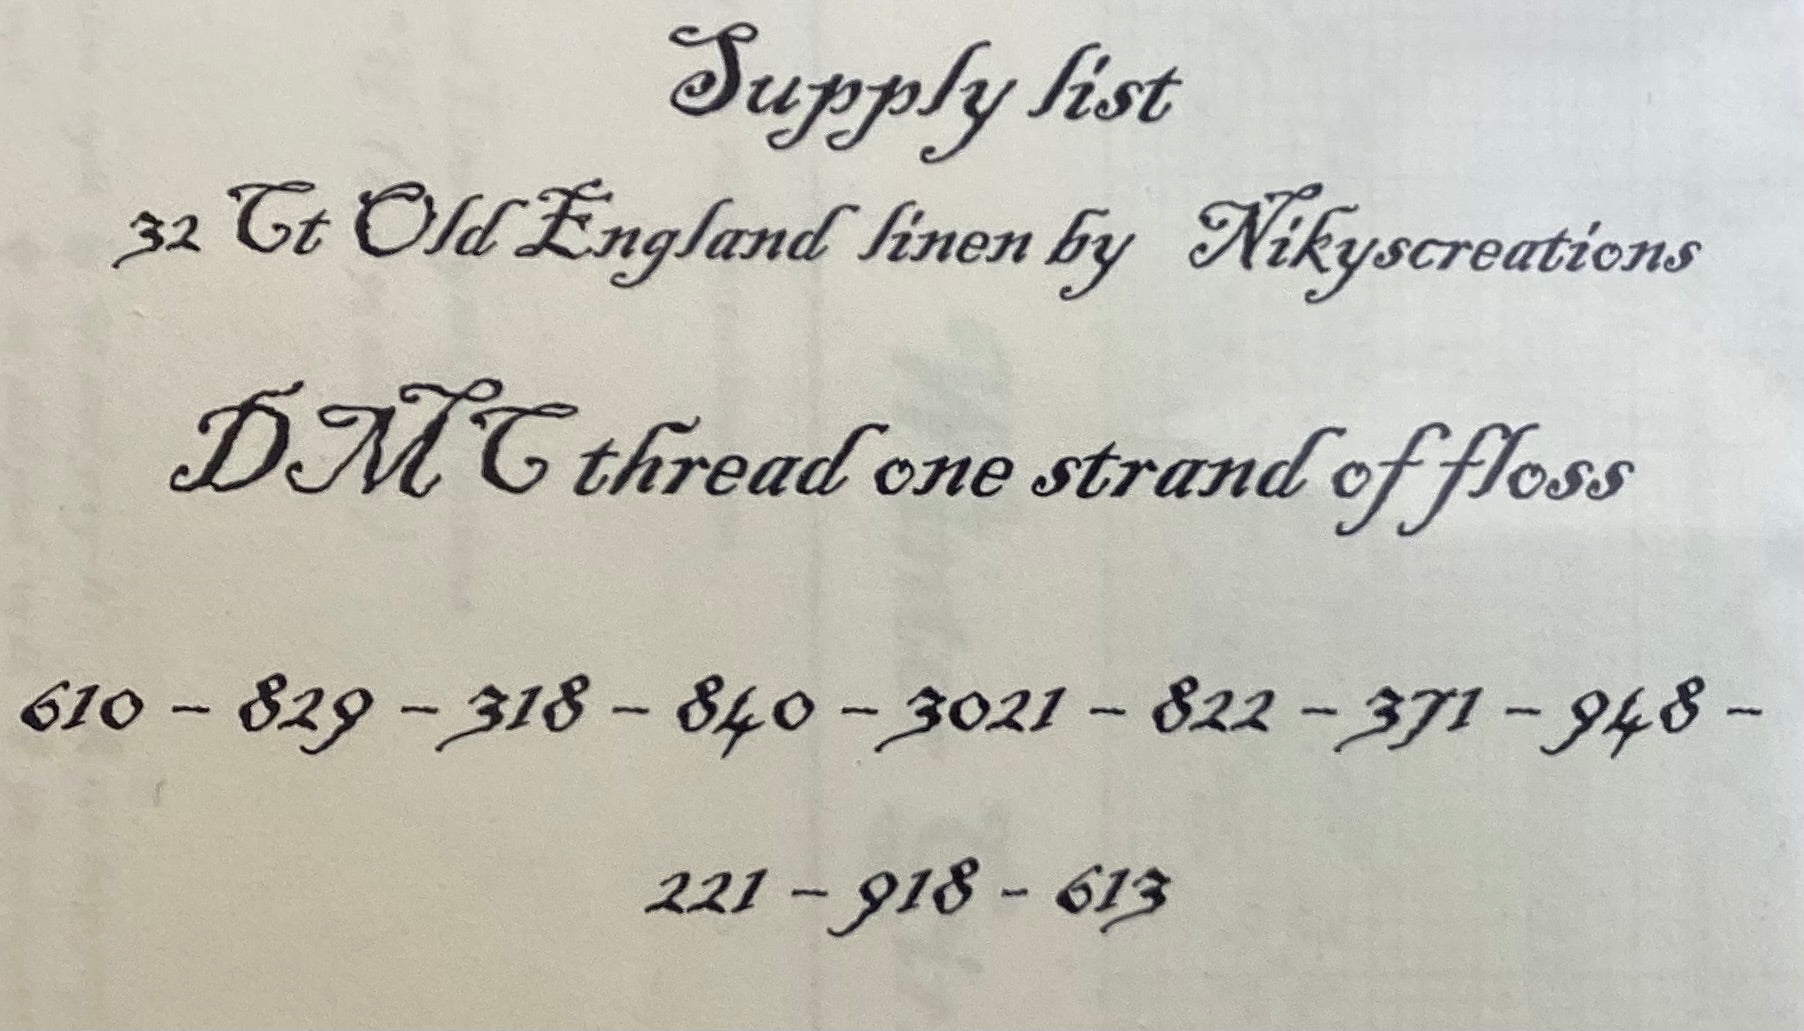 Supply list
32 Ct Old England linen by Nikyscreations
DMC thread one strand of floss
610 - 829 - 318 - 840 - 3021 - 822 - 371 - 948 -
221 - 918 - 613